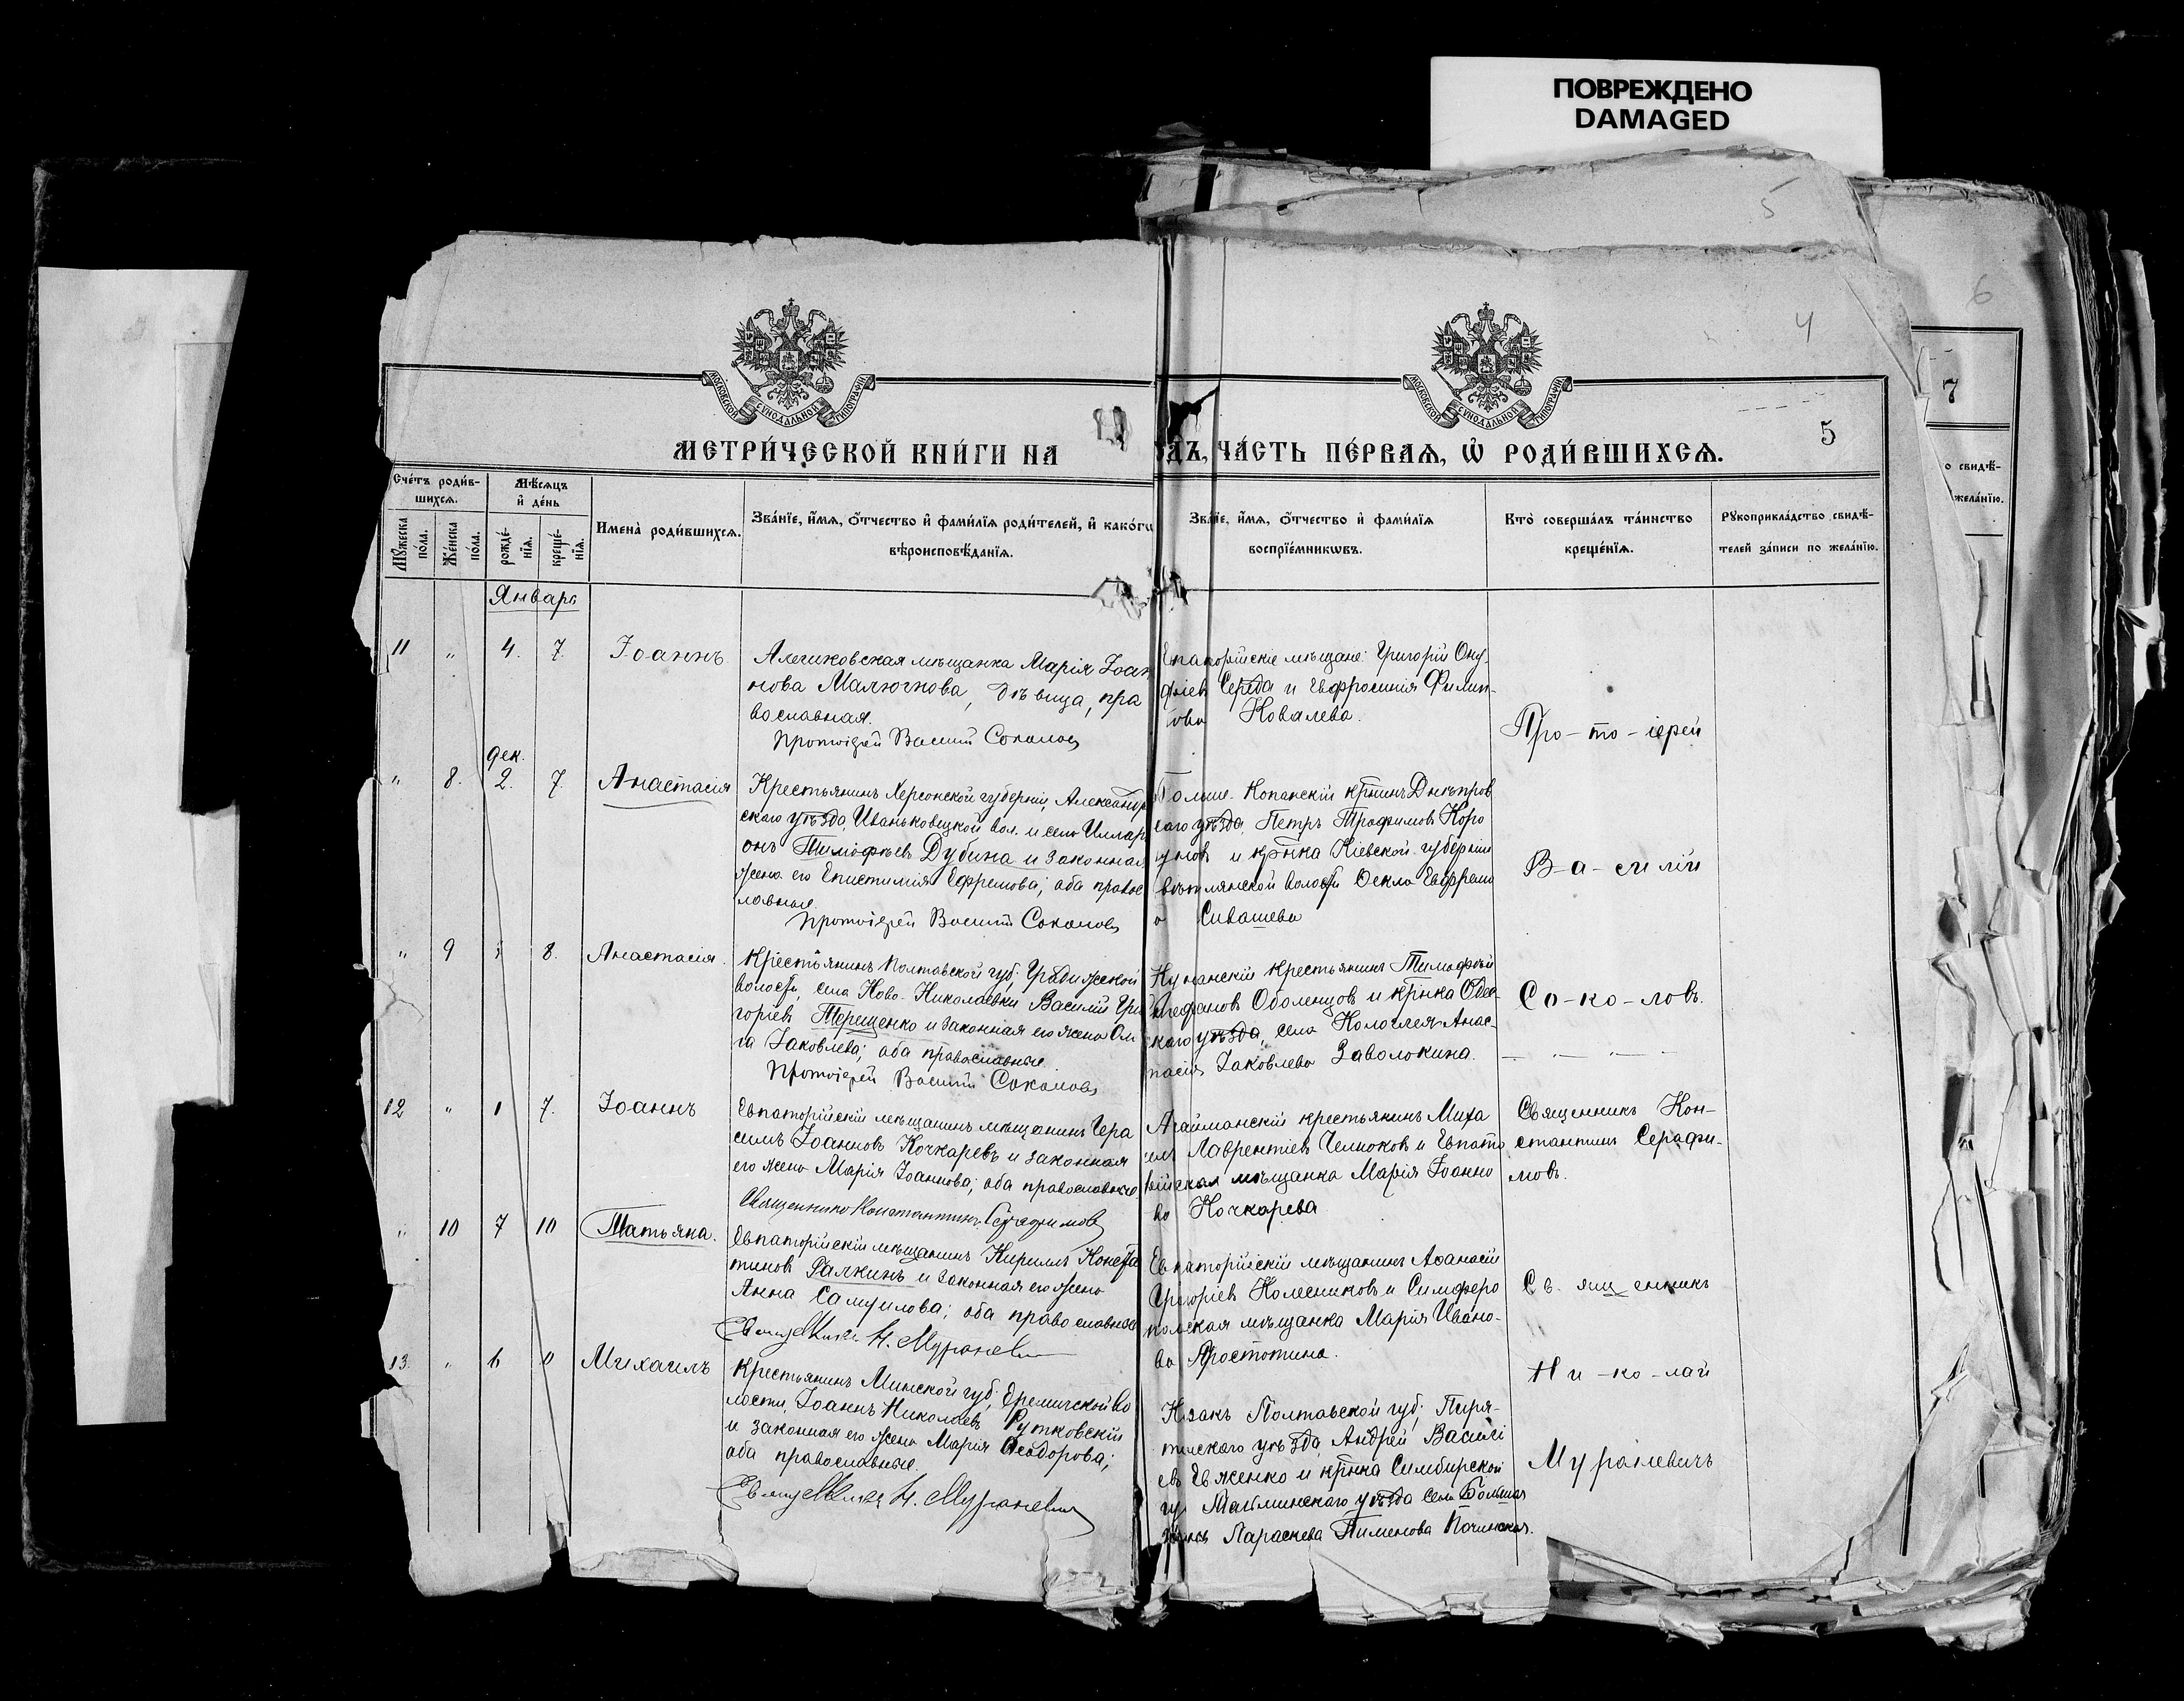 ПОВРЕЖДЕНО
DAMAGED
5
6
4
7
5
МОСКОВСКОЙ СѴНОДАЛЬНОЙ ТИПОГРАФІИ
МОСКОВСКОЙ СѴНОДАЛЬНОЙ ТИПОГРАФІИ
МЕТРИ́ЧЕСКОЙ КНИ́ГИ НА
ДЪ, ЧА́СТЬ ПЕ́РВАѦ, Ѡ҆ РОДИ́ВШИХСѦ.
о свидѣ-
жела́нїю.
Сче́тъ роди́в-
шихсѧ.
Мѣ́сяцъ
и҆ де́нь
Мꙋ́жеска
по́ла.
Же́нска
пола.
рожде́-
нїѧ.
креще́-
нїѧ.
Имена̀ роди́вшихсѧ.
Зва́нїе, и҆́мѧ, ѻ҆́тчество и҆ фами́лїѧ роди́телей, и҆ како́гѡ
вѣроисповѣ́данїѧ.
Зва́нїе, и҆́мѧ, ѻ҆́тчество и҆ фами́лїѧ
воспрїе́мникѡвъ.
Кто̀ соверша́лъ та́инство
креще́нїѧ.
Рꙋкоприкла́дство свидѣ́-
телей за́писи по жела́нїю.
Январь
11 " 4. 7 Іоаннъ
Алешковская мѣщанка Марія Іоан
нова Малюгнова, дѣвица, пра
вославная.
Протоіерей Василій Соколовъ
Евпаторійскіе мѣщане: Григорій Ону-
фріевъ Середа и Евфросинія Филип-
ова Ковалева.
Про-то-іерей
дек.
" 8. 2. 7. Анастасія
Крестьянинъ Херсонской губерніи, Александр
скаго уѣзда, Иваньковецкой вол. и села Иллари
онъ Тимофѣевъ Дубина и законная
жена его Епистимія Ефремова; оба правос
лавные.
Протоіерей Василій Соколовъ
Больше-Копанскій крт҃инъ Днѣпров
скаго уѣзда, Петръ Трофимовъ Коро
уновъ и кр҃нка Кіевской губерніи
волости Ѳекла Евфремо
а Сивашева
Ва-си-лій
" 9 8. Анастасія.
Крестьянинъ Полтавской губ; Градижской
волости, села Ново-Николаевки Василій Гри
горіевъ Терещенко и законная его жена Ол
га Іаковлева; оба православные.
Протоіерей Василій Соколовъ
крестьянинъ Тимофѣй
Стефановъ Оболенцовъ и кр҃нка Одес-
скаго уѣзда, села Анас-
тасія Іаковлева Заволокина.
Со-ко-ловъ.
12 " 1 7. Іоаннъ
Евпаторійскій мѣщанинъ мѣщанинъ Гера
симъ Іоанновъ Кочкаревъ и законная
его жена Марія Іоаннова; оба православные
Священникъ Константинъ Серафимовъ
Агайманскій крестьянинъ Миха
илъ Лаврентіевъ Челноковъ и Евпато
рійская мѣщанка Марія Іоанно
ва Кочкарева
Священникъ Кон-
стантинъ Серафи-
мовъ.
" 10 7 10 Татьяна.
Евпаторійскій мѣщанинъ Кириллъ Конста
тиновъ Галкинъ и законная его жена
Анна Самуилова; оба православные
Священникъ Н. Муралевичъ
Евпаторійскій мѣщанинъ Аѳанасій
Григоріевъ Колесниковъ и Симферо
польская мѣщанка Марія Ивано-
ва Простотина.
Св. ящ енникъ
13. " 6 Михаилъ
Крестьянинъ Минской губ; Еремичской во
лости, Іоаннъ Николаевъ Рутковскій
и законная его жена Марія Ѳеодорова;
оба православные.
Священникъ Н. Муралевичъ
Казакъ Полтавской губ; Пиря-
тинскаго уѣзда Андрей Василі
евъ Евженко и кр҃нка Симбирской
гу уѣзда села Большая
Параскева Пименова Починская.
Ни-ко-лай
Муралевичъ